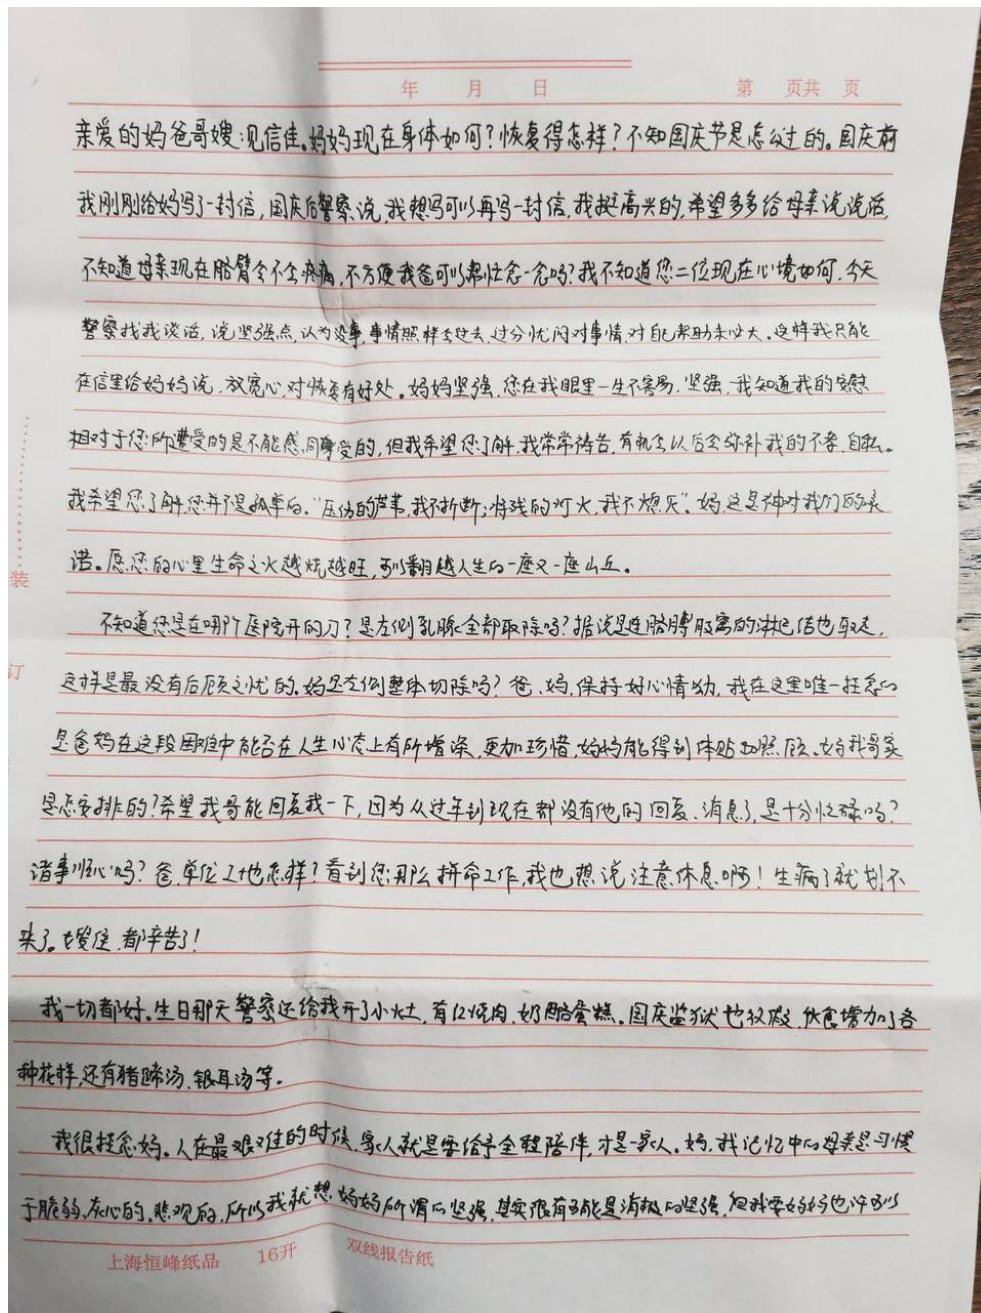 年 月 日 第 页共 页
亲爱的妈爸哥嫂:见信佳。妈妈现在身体如何?恢复得怎样?不知国庆节是怎么过的。国庆前
我刚刚给妈写了一封信,国庆后警察说,我想写可以再写一封信,我挺高兴的,希望多多给母亲说说话,
不知道母亲现在胳臂会不会疼痛,不方便我爸可以帮忙念一念吗?我不知道您二位现在心境如何,今天
警察找我谈话,说坚强点,认为没事,事情照样会过去,过分忧闷对事情、对自己帮助未必大。这样我只能
在信里给妈妈说,放宽心,对恢复有好处。妈妈坚强,您在我眼里一生不容易,坚强,我知道我的安慰
相对于您所遭受的是不能感同身受的,但我希望您了解,我常常祷告,有机会以后会弥补我的不孝、自私。
我希望您了解,您并不是孤单的。“压伤的芦苇,我不折断;将残的灯火,我不熄灭”。妈,这是神对我们的承
诺。愿您的心里生命之火越烧越旺,可以翻越人生的一座又一座山丘。
不知道您是在哪个医院开的刀?是左侧乳腺全部取除吗?据说是连胳膊肢窝的淋巴结也取走,
这样是最没有后顾之忧的。妈是左侧整体切除吗?爸、妈,保持好心情呦,我在这里唯一挂念的
是爸妈在这段困难中能否在人生心态上有所增添,更加珍惜,妈妈能得到体贴与照顾。妈我哥家
是怎安排的?希望我哥能回复我一下,因为从过年到现在都没有他的回复、消息了,是十分忙碌吗?
诸事顺心吗?爸,单位工地怎样?看到您那么拼命工作,我也想说注意休息啊!生病了就划不
来了。嫂侄,都辛苦了!
我一切都好。生日那天警察还给我开了小灶,有红烧肉、奶酪蛋糕。国庆监狱也放假,伙食增加了各
种花样,还有猪蹄汤、银耳汤等。
我很挂念妈。人在最艰难的时候,家人就是要给予全程陪伴,才是一家人。妈,我记忆中的母亲是习惯
于脆弱、灰心的、悲观的,所以我就想妈妈所谓的坚强,其实很有可能是消极的坚强,但我要妈妈也许可以
上海恒峰纸品 16开 双线报告纸
装
订